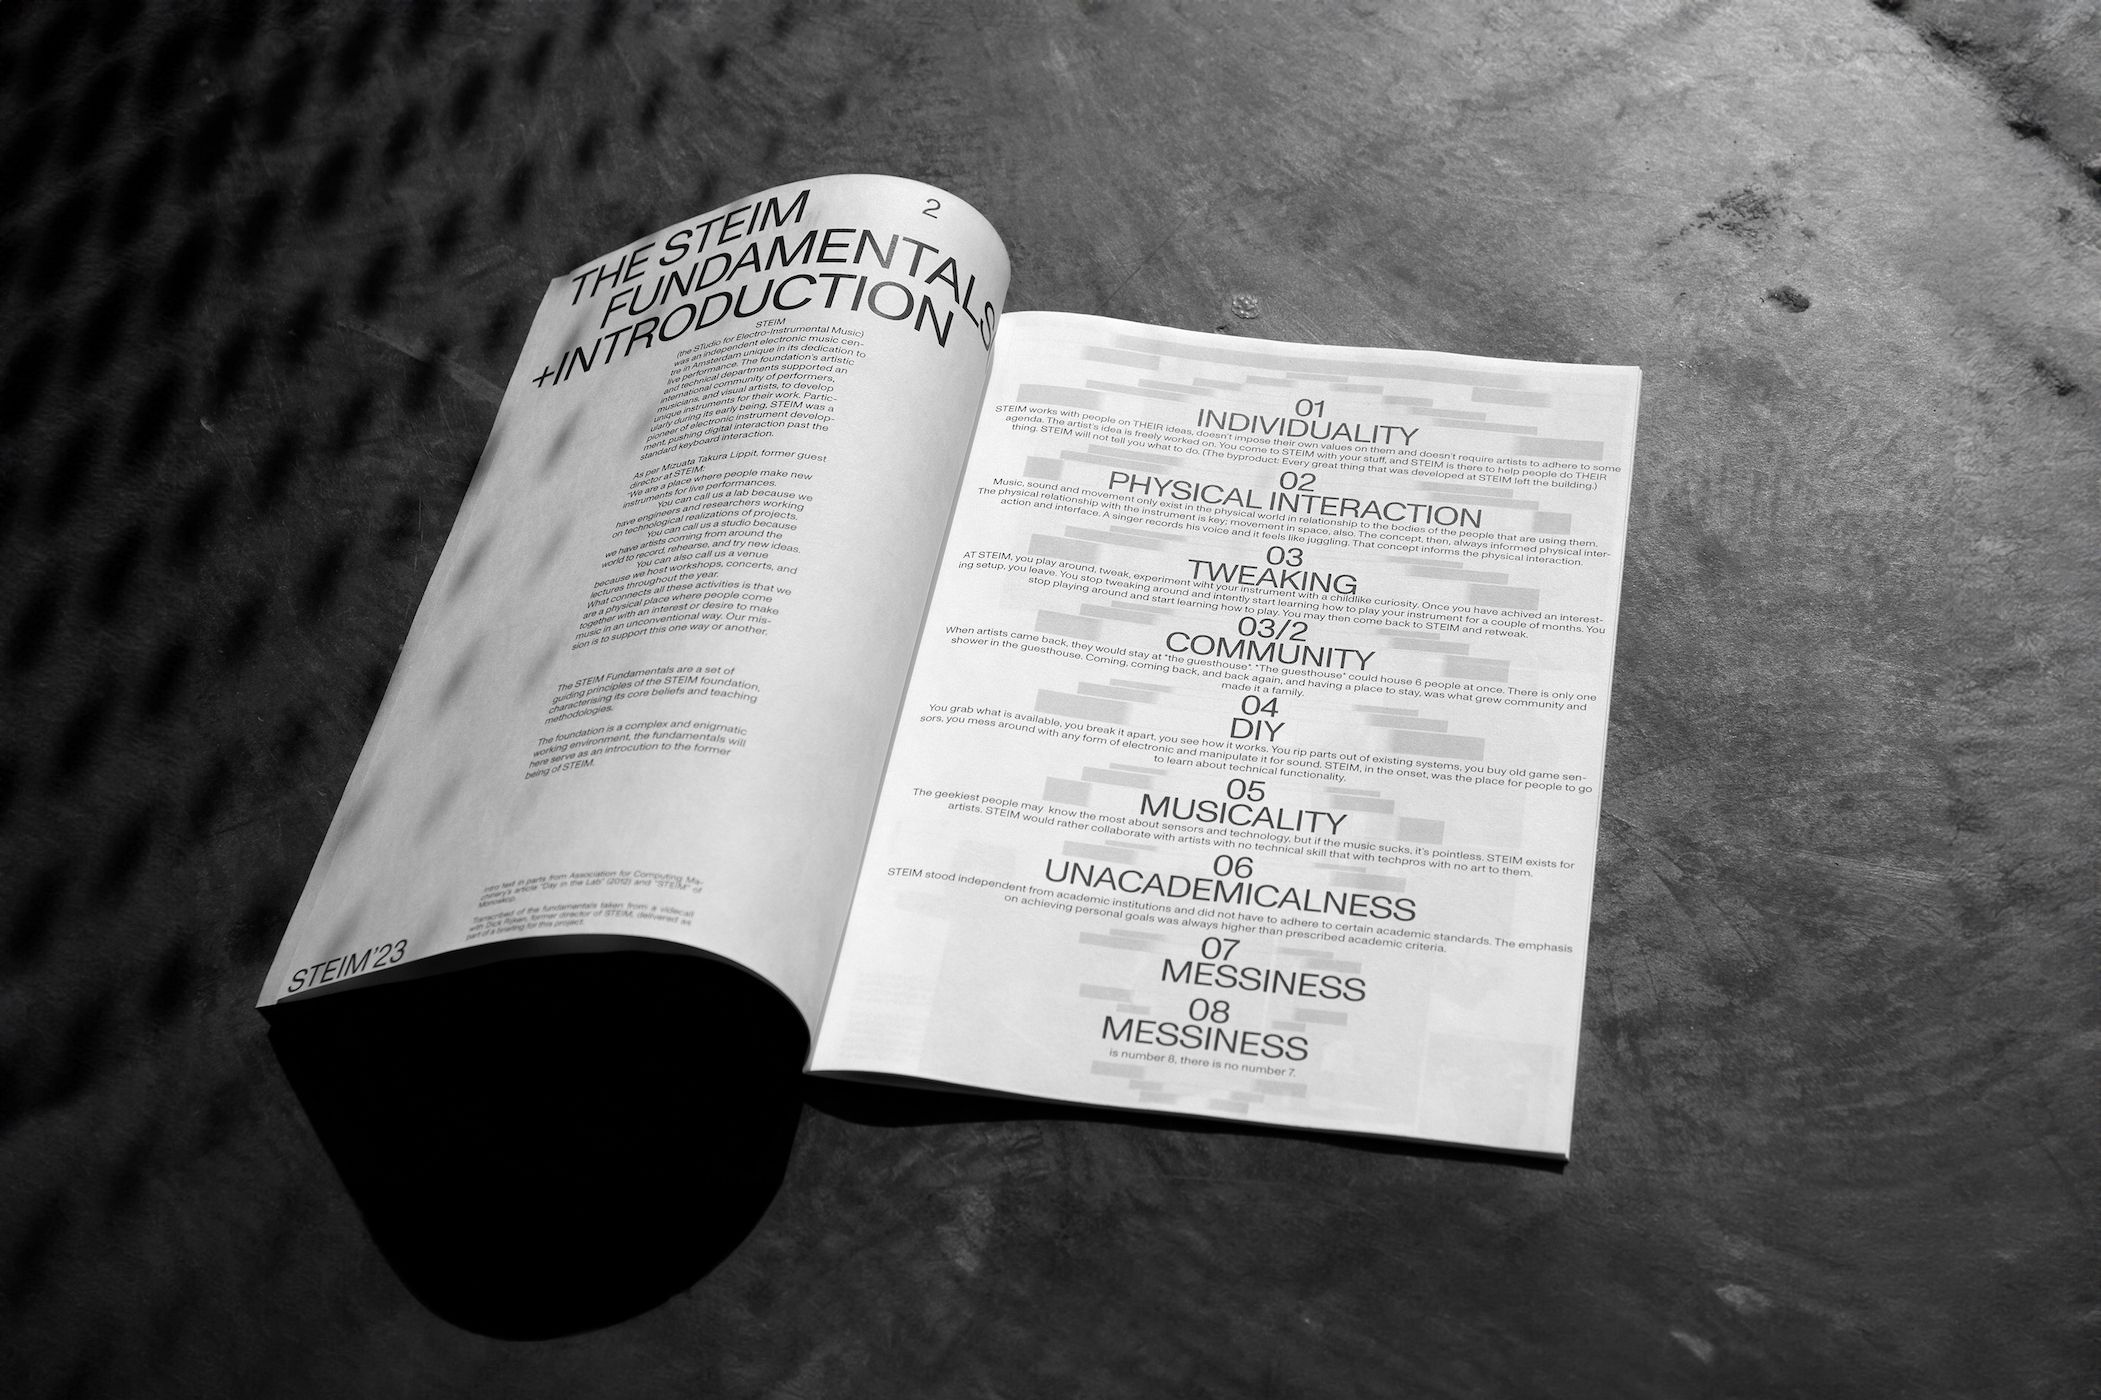 2
THE STEIM
FUNDAMENTALS
+INTRODUCTION
STEIM
(the STudio for Electro-Instrumental Music)
was an independent electronic music cen-
tre in Amsterdam unique in its dedication to
live performance. The foundation's artistic
and technical departments supported an
international community of performers,
musicians, and visual artists, to develop
unique instruments for their work. Partic-
ularly during its early being, STEIM was a
pioneer of electronic instrument develop-
ment, pushing digital interaction past the
standard keyboard interaction.
As per Mizuata Takura Lippit, former guest
director at STEIM:
"We are a place where people make new
instruments for live performances.
You can call us a lab because we
have engineers and researchers working
on technological realizations of projects.
You can call us a studio because
we have artists coming from around the
world to record, rehearse, and try new ideas.
You can also call us a venue
because we host workshops, concerts, and
lectures throughout the year.
What connects all these activities is that we
are a physical place where people come
together with an interest or desire to make
music in an unconventional way. Our mis-
sion is to support this one way or another.
The STEIM Fundamentals are a set of
guiding principles of the STEIM foundation,
characterising its core beliefs and teaching
methodologies.
The foundation is a complex and enigmatic
working environment, the fundamentals will
here serve as an introcution to the former
being of STEIM.
Intro text in parts from Association for Computing Ma-
chinery's article "Day in the Lab" (2012) and "STEIM" of
Monoskop.
Transcribed of the fundamentals taken from a videcall
with Dick Rijken, former director of STEIM, delivered as
part of a briefing for this project.
STEIM'23
01
INDIVIDUALITY
STEIM works with people on THEIR ideas, doesn't impose their own values on them and doesn't require artists to adhere to some
agenda. The artist's idea is freely worked on. You come to STEIM with your stuff, and STEIM is there to help people do THEIR
thing. STEIM will not tell you what to do. (The byproduct: Every great thing that was developed at STEIM left the building.)
02
PHYSICAL INTERACTION
Music, sound and movement only exist in the physical world in relationship to the bodies of the people that are using them.
The physical relationship with the instrument is key; movement in space, also. The concept, then, always informed physical inter-
action and interface. A singer records his voice and it feels like juggling. That concept informs the physical interaction.
03
TWEAKING
AT STEIM, you play around, tweak, experiment wiht your instrument with a childlike curiosity. Once you have achived an interest-
ing setup, you leave. You stop tweaking around and intently start learning how to play your instrument for a couple of months. You
stop playing around and start learning how to play. You may then come back to STEIM and retweak.
03/2
COMMUNITY
When artists came back, they would stay at "the guesthouse". "The guesthouse" could house 6 people at once. There is only one
shower in the guesthouse. Coming, coming back, and back again, and having a place to stay, was what grew community and
made it a family.
04
DIY
You grab what is available, you break it apart, you see how it works. You rip parts out of existing systems, you buy old game sen-
sors, you mess around with any form of electronic and manipulate it for sound. STEIM, in the onset, was the place for people to go
to learn about technical functionality.
05
MUSICALITY
The geekiest people may know the most about sensors and technology, but if the music sucks, it's pointless. STEIM exists for
artists. STEIM would rather collaborate with artists with no technical skill that with techpros with no art to them.
06
UNACADEMICALNESS
STEIM stood independent from academic institutions and did not have to adhere to certain academic standards. The emphasis
on achieving personal goals was always higher than prescribed academic criteria.
07
MESSINESS
08
MESSINESS
is number 8, there is no number 7.